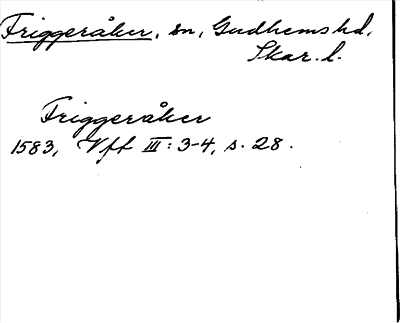 Friggeråker, sn, Gudhems hd,
Skar. l.
Friggeråker
1583, Vff III: 3-4, s. 28.